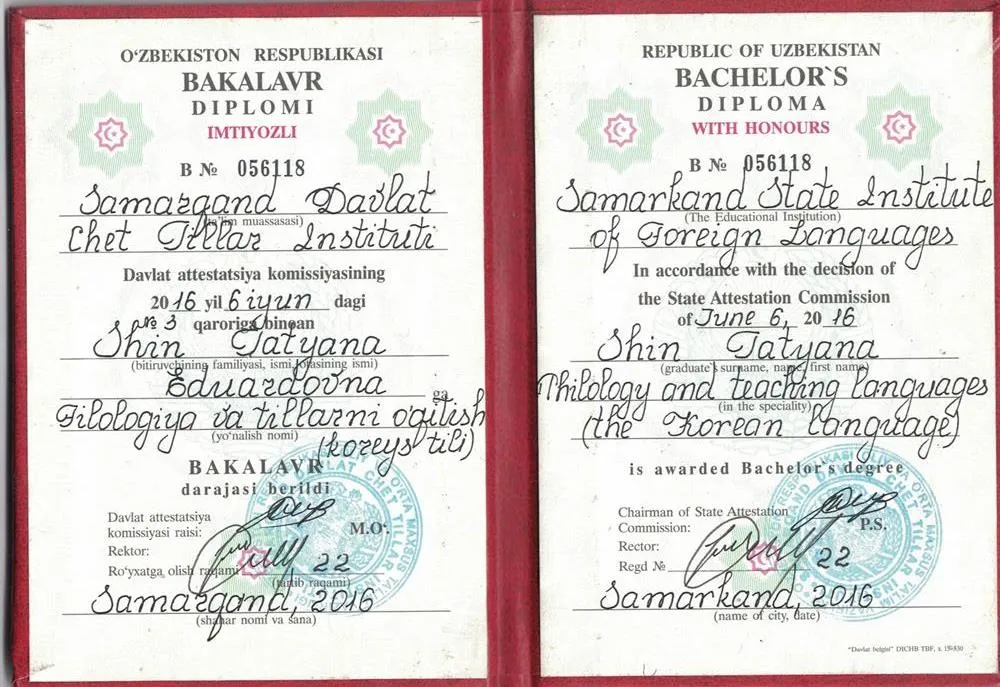 O‘ZBEKISTON RESPUBLIKASI
BAKALAVR
DIPLOMI
IMTIYOZLI
B № 056118
Samarqand Davlat
(ta’lim muassasasi)
Chet Tillar Instituti
Davlat attestatsiya komissiyasining
2016 yil 6 iyun dagi
№ 3 qaroriga binoan
Shin Tatyana
(bitiruvchining familiyasi, ismi, otasining ismi)
Eduardovna ga
Filologiya va tillarni oqitish
(yo‘nalish nomi)
(koreys tili)
BAKALAVR
darajasi berildi
Davlat attestatsiya
komissiyasi raisi:
M.O‘.
Rektor:
Ro‘yxatga olish raqami 22
(tartib raqami)
Samarqand, 2016
(shahar nomi va sana)
REPUBLIC OF UZBEKISTAN
BACHELOR`S
DIPLOMA
WITH HONOURS
B № 056118
Samarkand State Institute
(The Educational Institution)
of Foreign Languages
In accordance with the decision of
the State Attestation Commission
of June 6, 2016
Shin Tatyana
(graduate's surname, name, first name)
Philology and teaching languages
(in the speciality)
(the Korean language)
is awarded Bachelor's degree
Chairman of State Attestation
Commission:
P.S.
Rector:
Regd № 22
Samarkand, 2016
(name of city, date)
"Davlat belgisi" DICHB TBF, z.